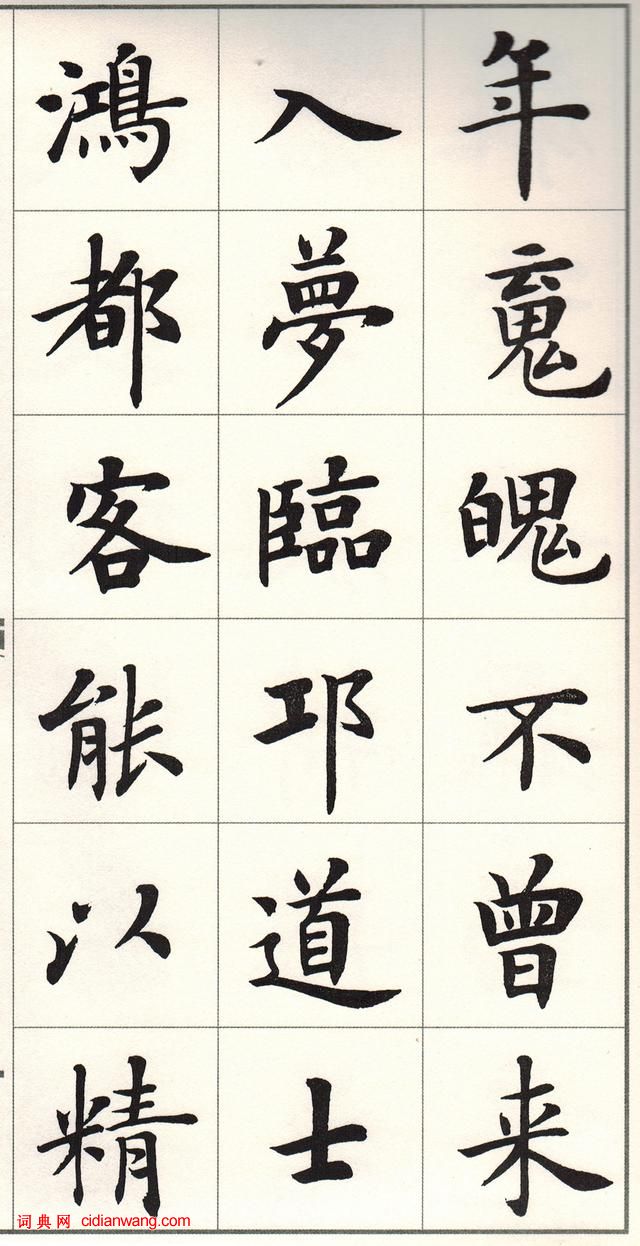 年䰟魄不曾来
入夢臨邛道士
鴻都客能以精
词典网 cidianwang.com